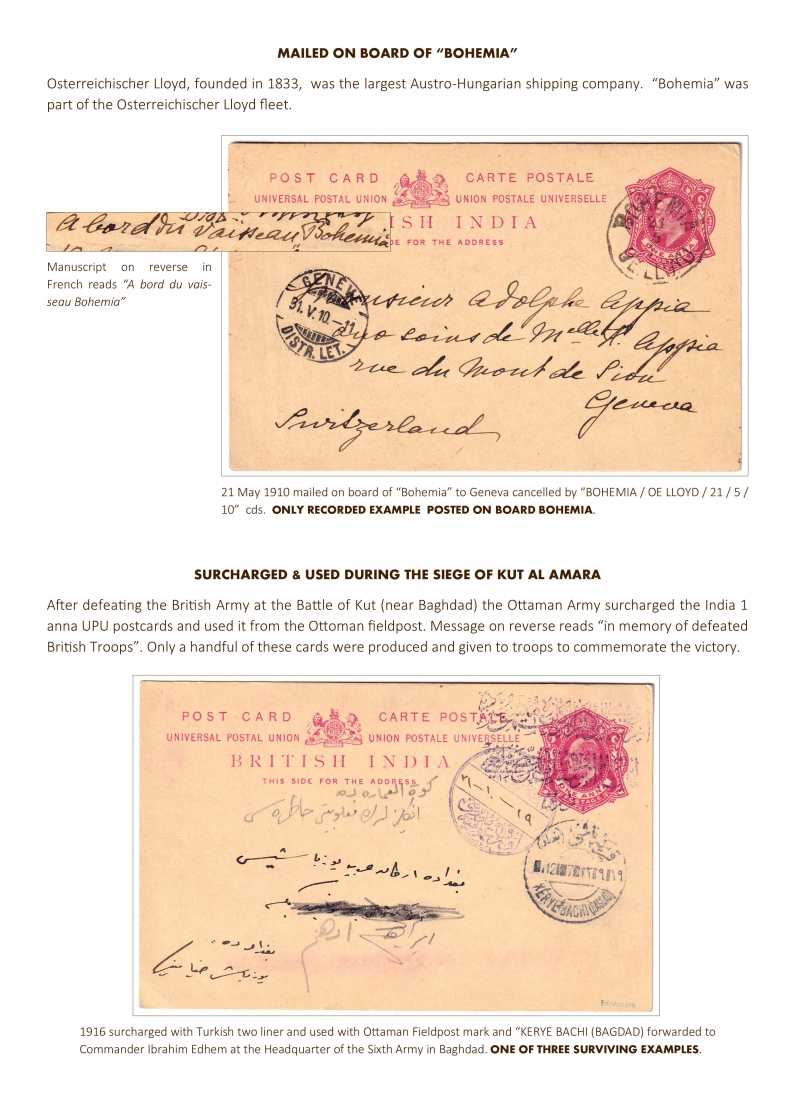 MAILED ON BOARD OF “BOHEMIA”
Osterreichischer Lloyd, founded in 1833, was the largest Austro-Hungarian shipping company. “Bohemia” was
part of the Osterreichischer Lloyd fleet.
POST CARD CARTE POSTALE
UNIVERSAL POSTAL UNION UNION POSTALE UNIVERSELLE
ISH INDIA
DE FOR THE ADDRESS
A bord du vaisseau Bohemia
BOHEMIA
21
5
OE LLOYD
ONE ANNA
Manuscript on reverse in
French reads “A bord du vais-
seau Bohemia”
GENÈVE
31.V.10.–11
DISTR. LET.
Monsieur Adolphe Appia
aux soins de Melle H. Appia
rue du Mont de Sion
Geneva
Switzerland
21 May 1910 mailed on board of “Bohemia” to Geneva cancelled by “BOHEMIA / OE LLOYD / 21 / 5 /
10” cds. ONLY RECORDED EXAMPLE POSTED ON BOARD BOHEMIA.
SURCHARGED & USED DURING THE SIEGE OF KUT AL AMARA
After defeating the British Army at the Battle of Kut (near Baghdad) the Ottaman Army surcharged the India 1
anna UPU postcards and used it from the Ottoman fieldpost. Message on reverse reads “in memory of defeated
British Troops”. Only a handful of these cards were produced and given to troops to commemorate the victory.
POST CARD CARTE POSTALE
UNIVERSAL POSTAL UNION UNION POSTALE UNIVERSELLE
BRITISH INDIA
THIS SIDE FOR THE ADDRESS
ONE ANNA
POSTAGE
كوة العماره ده
KERYE BACHI (BAGDAD)
ابراهيم ادهم
بغداده
Friedemann
1916 surcharged with Turkish two liner and used with Ottaman Fieldpost mark and “KERYE BACHI (BAGDAD) forwarded to
Commander Ibrahim Edhem at the Headquarter of the Sixth Army in Baghdad. ONE OF THREE SURVIVING EXAMPLES.